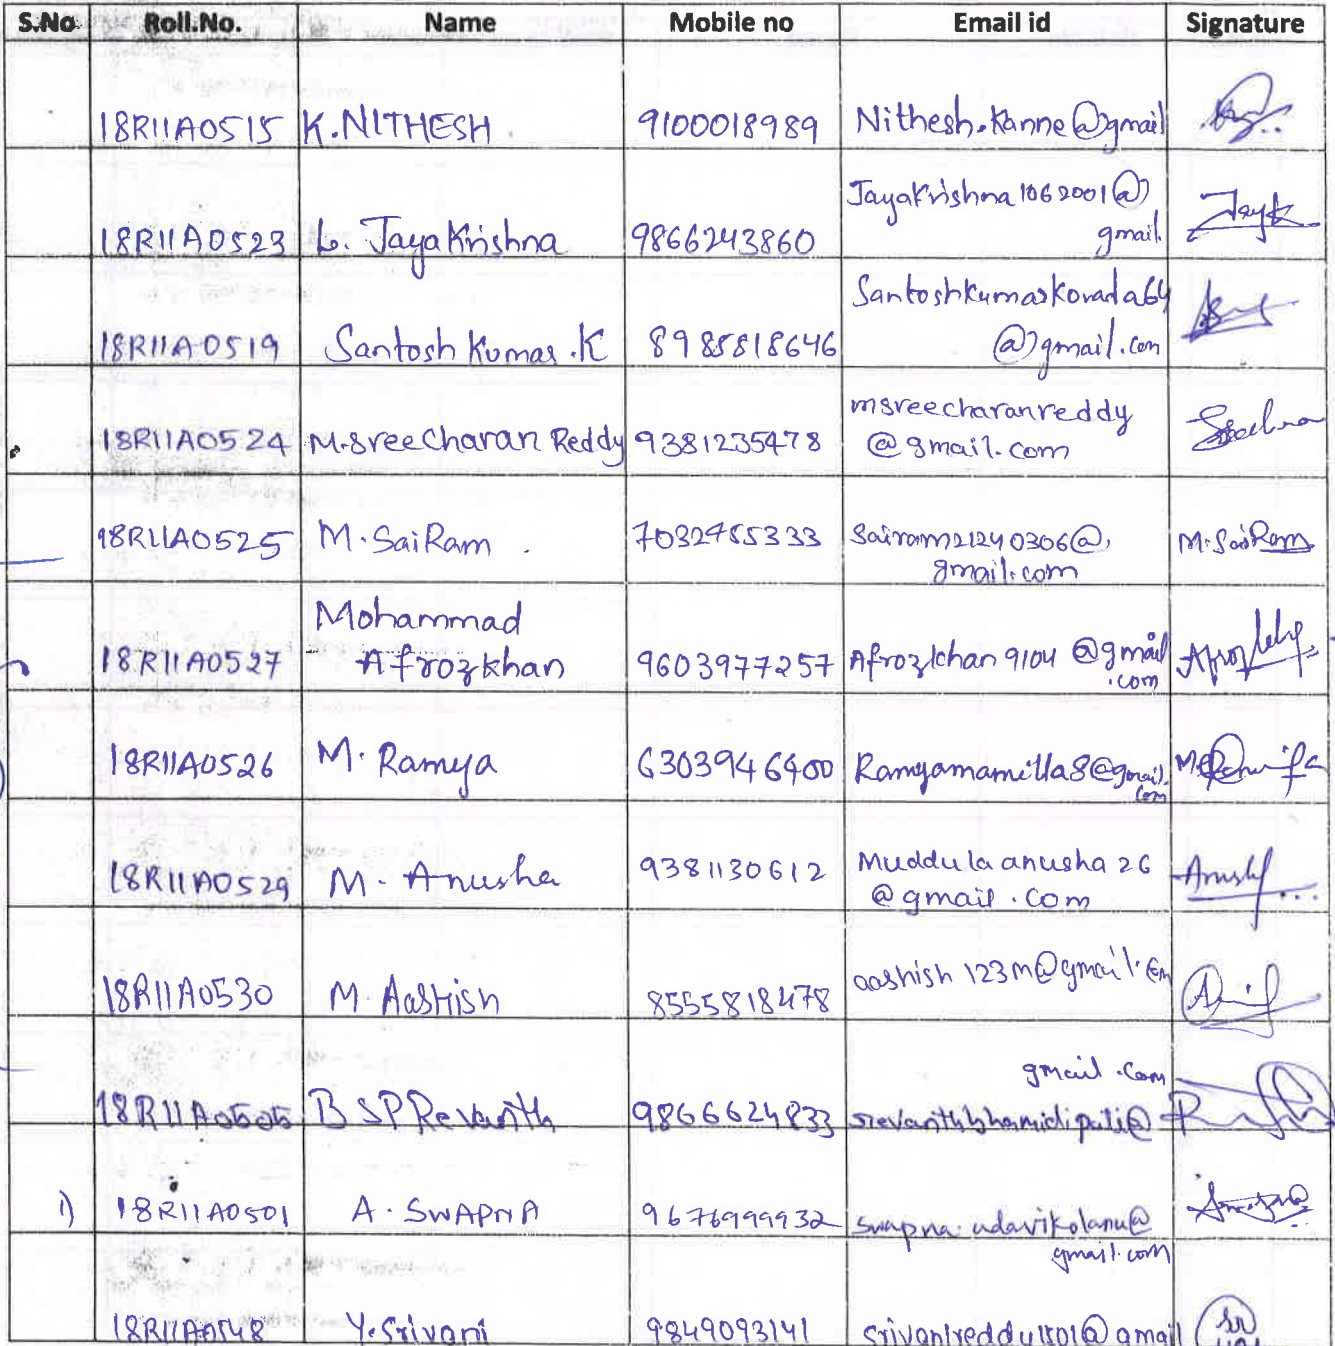 S.No Roll.No. Name Mobile no Email id Signature
18R11A0515 K.NITHESH 9100018989 Nithesh.Kanne@gmail
18R11A0523 L. JayaKrishna 9866243860 JayaKrishna1062001@
gmail.
18R11A0519 Santosh Kumar.K 8985818646 Santoshkumarkorada64
@gmail.com
18R11A0524 M.Sree Charan Reddy 9381235478 msreecharanreddy
@gmail.com
18R11A0525 M.SaiRam 7032455333 Sairam21240306@
gmail.com M.SaiRam
Mohammad
18R11A0527 Afrozkhan 9603977257 Afrozkhan9104 @gmail
.com
18R11A0526 M. Ramya 6303946400 Ramyamamilla8@gmail.
com
18R11A0529 M. Anusha 9381130612 Muddulaanusha26
@gmail.com
18R11A0530 M. Aashish 8555818478 aashish123m@gmail.com
gmail.com
18R11A0505 B S P Revanth 9866624833 srevanthbhamidipati@
1) 18R11A0501 A. SWAPNA 9676999932 swapna.udavikolanu@
gmail.com
18R11A0548 Y.Srivani 9849093141